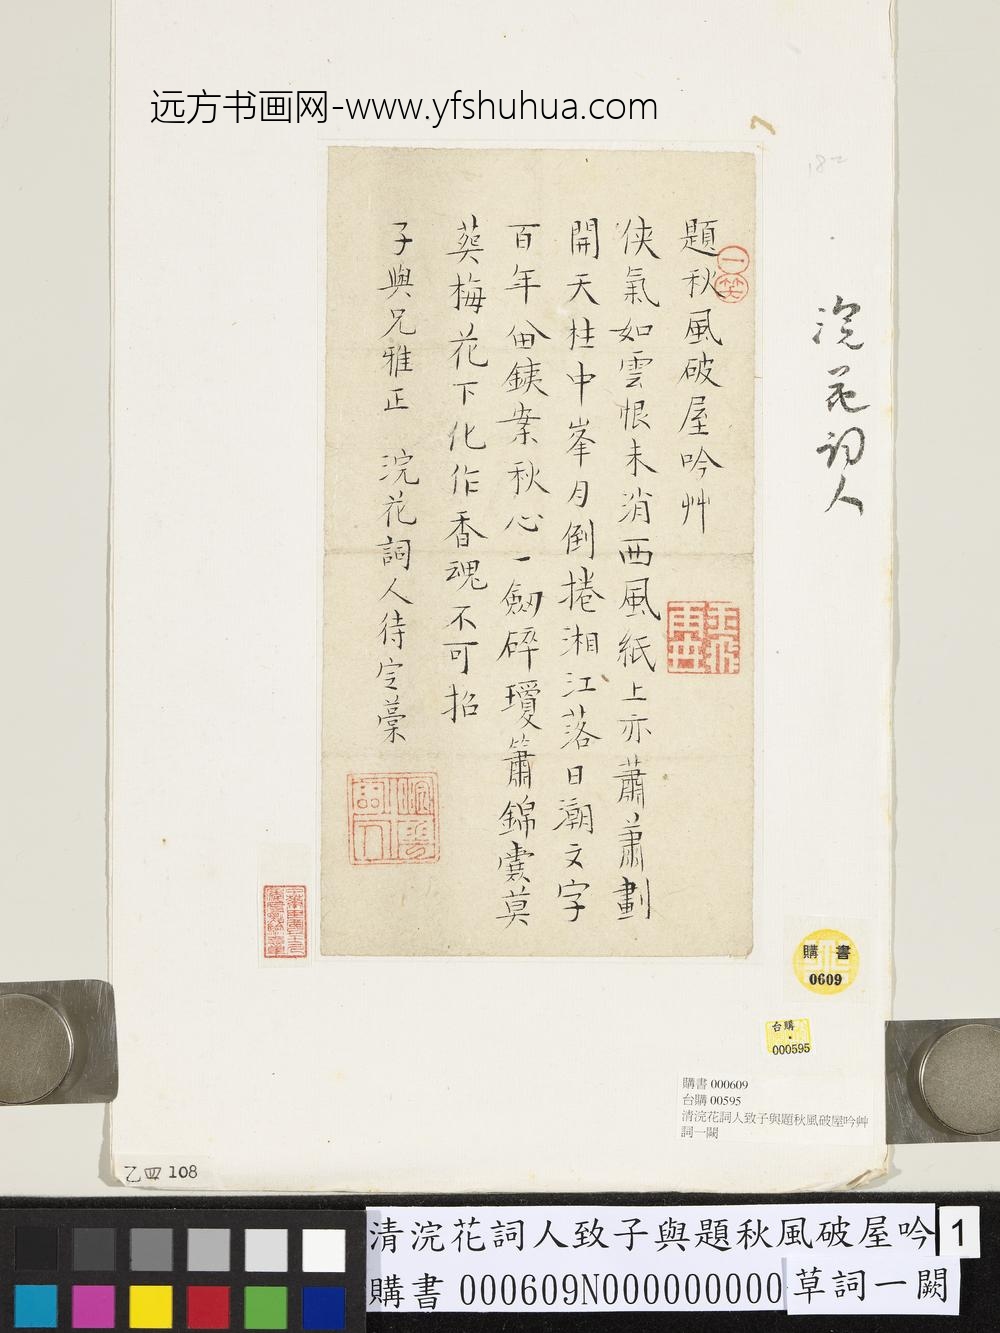 远方书画网-www.yfshuhua.com
題秋風破屋吟艸
俠氣如雲恨未消西風紙上亦蕭蕭劃
開天柱中峯月倒捲湘江落日潮文字
百年畱鐵案秋心一劒碎瓊簫錦囊莫
葬梅花下化作香魂不可招
子與兄雅正 浣花詞人待定藳
一笑
浣花詞人
浣花詞人
購書
0609
台購
000595
購書 000609
台購 00595
清浣花詞人致子與題秋風破屋吟艸
詞一闋
乙四 108
清浣花詞人致子與題秋風破屋吟
1
購書 000609N000000000
草詞一闋